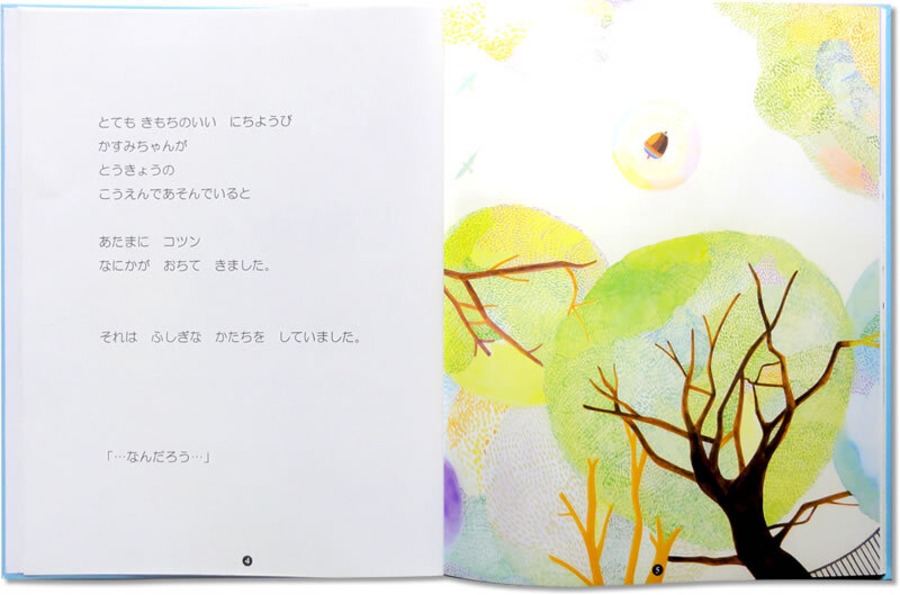 とても きもちのいい　にちようび
かすみちゃんが
とうきょうの
こうえんであそんでいると
あたまに　コツン
なにかが　おちて　きました。
それは　ふしぎな　かたちを　していました。
「…なんだろう…」
4
5